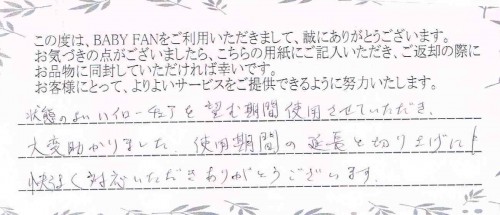 この度は、BABY FANをご利用いただきまして、誠にありがとうございます。
お気づきの点がございましたら、こちらの用紙にご記入いただき、ご返却の際に
お品物に同封していただければ幸いです。
お客様にとって、よりよいサービスをご提供できるように努力いたします。
状態のよいハイローチェアを望む期間使用させていただき、
大変助かりました。使用期間の延長と切り上げにも
快く対応いただきありがとうございます。